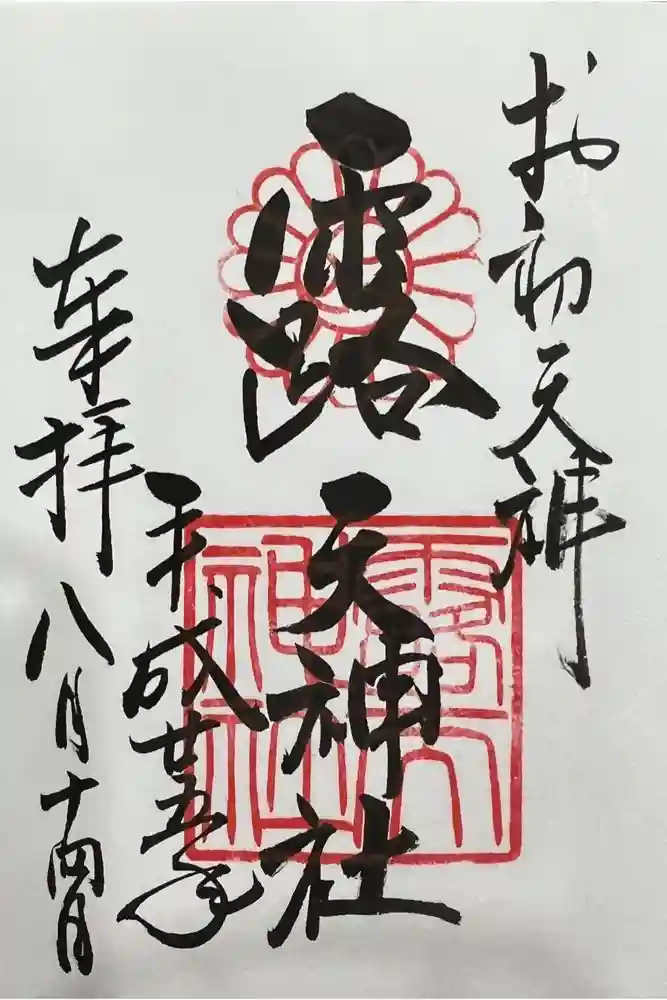 お初天神
露天神社
露天神社
平成廿五年
奉拝 八月十四日